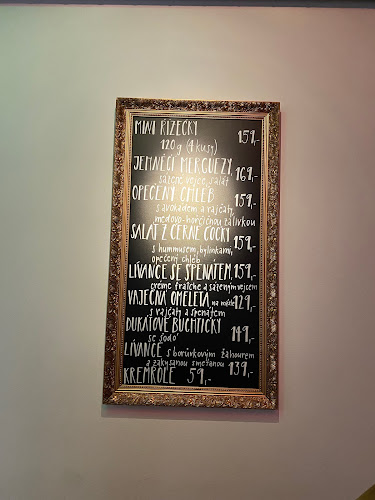 MINI ŘÍZEČKY 159,-
120g (4 kusy)
JEMNĚČÍ MERGUEZY, 169,-
sázené vejce, salát
OPEČENÝ CHLÉB 159,-
s avokádem a rajčaty,
medovo-hořčičnou zálivkou
SALÁT Z ČERNÉ ČOČKY 159,-
s hummusem, bylinkami,
opečený chléb
LÍVANCE SE ŠPENÁTEM, 159,-
créme fraîche a sázeným vejcem
VAJEČNÁ OMELETA na másle 129,-
s rajčaty a špenátem
DUKÁTOVÉ BUCHTIČKY 149,-
se šodó
LÍVANCE s borůvkovým žahourem
a zakysanou smetanou 139,-
KREMROLE 59,-